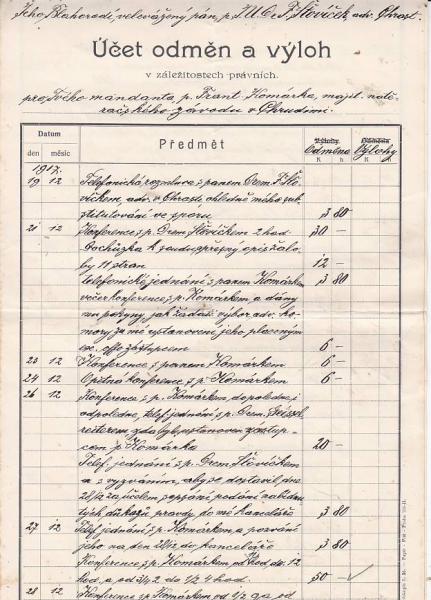 Jeho Blahorodí, velevážený pán, p. J.U.C. F. Šlovíček, adv. Chrast
Účet odměn a výloh
v záležitostech právních.
pro Svého mandanta, p. Frant. Komárka, majit.
závodu v Chrudimi.
Datum
den měsíc
Předmět
Odměna
K h
Výlohy
K h
1917.
19 12 Telefonická rozmluva s panem Drem. F. Šlo-
víčkem, adv. v Chrasti ohledně mého sub-
stitutování ve sporu 3 80
21 12 Konference s p. Drem. Šlovíčkem 2 hod. 30 —
Pochůzka k soudu, opis žalo-
by 11 stran 12 —
telefonické jednání s panem Komárkem 3 80
večer konference s p. Komárkem, a dány
mu pokyny, jak žádati výbor adv. ko-
mory za mé ustanovení jeho placeným
ex. offo zástupcem 6 —
23 12 Konference s panem Komárkem 6 —
24 12 Opětná konference s p. Komárkem 6 —
26 12 Konference s p. Komárkem, dopoledne, i
odpoledne, telef. jednání s p. Drem.
zda byl ustanoven zástup-
cem p. Komárka 20 —
Telef. jednání s p. Drem. Šlovíčkem
a s vyzváním, aby se dostavil dne
28/12 za účelem sepsání podání
důkazů pravdy do mé kanceláře 3 80
27 12 Telef. jednání s p. Komárkem a pozvání
jeho na den 28/12 do kanceláře 3 80
Konference s p. Komárkem od hod. do 12
hod. a od 1/2 2 do 1/2 4 hod. 50 —
28 12 Konference s p. Komárkem od 1/2 9 do